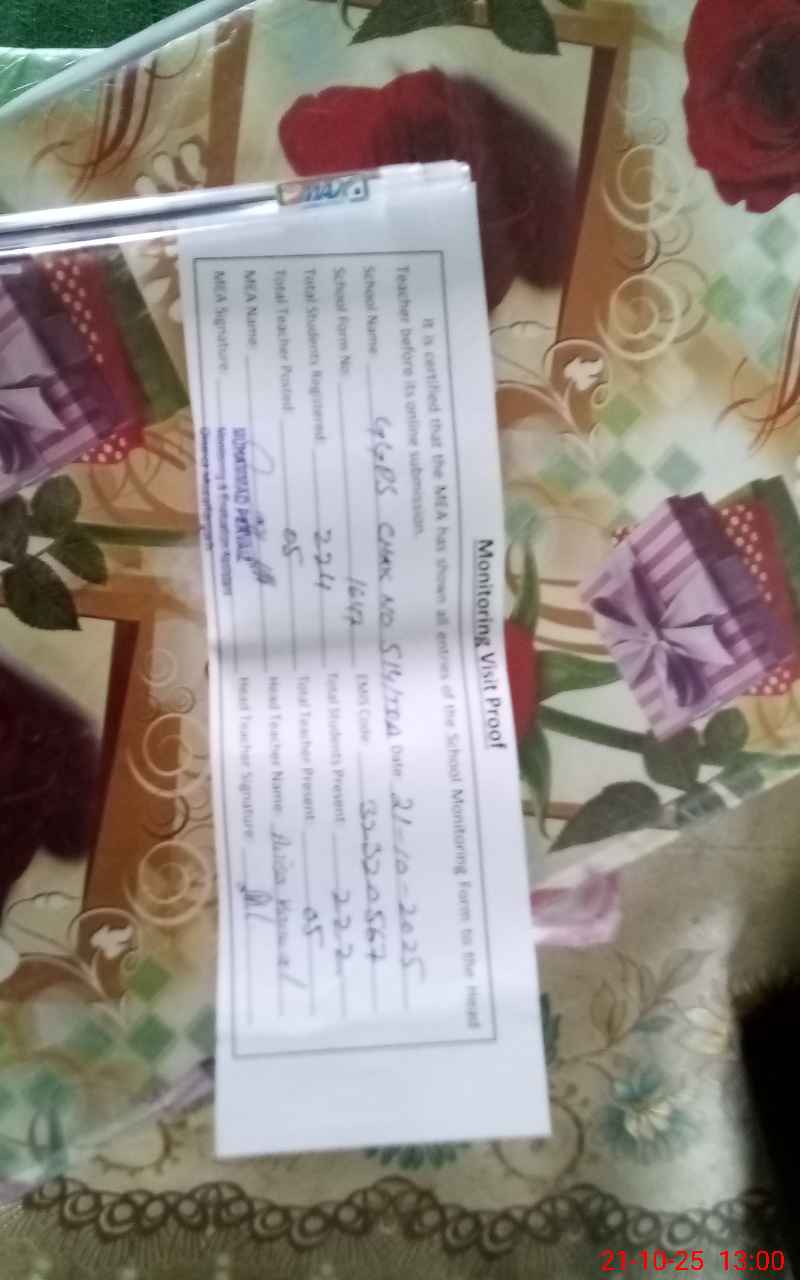 Monitoring Visit Proof
It is certified that the MEA has shown all entries of the School Monitoring Form to the Head
Teacher before its online submission.
School Name: GGPS CHAK NO 514/TDA Date: 21-10-2025
School Form No: 1647 EMIS Code: 32320567
Total Students Registered: 224 Total Students Present: 222
Total Teacher Posted: 05 Total Teacher Present: 05
MEA Name: Head Teacher Name: Kanwal
MEA Signature: Head Teacher Signature:
MUHAMMAD
Monitoring & Evaluation Assistant
21-10-25 13:00